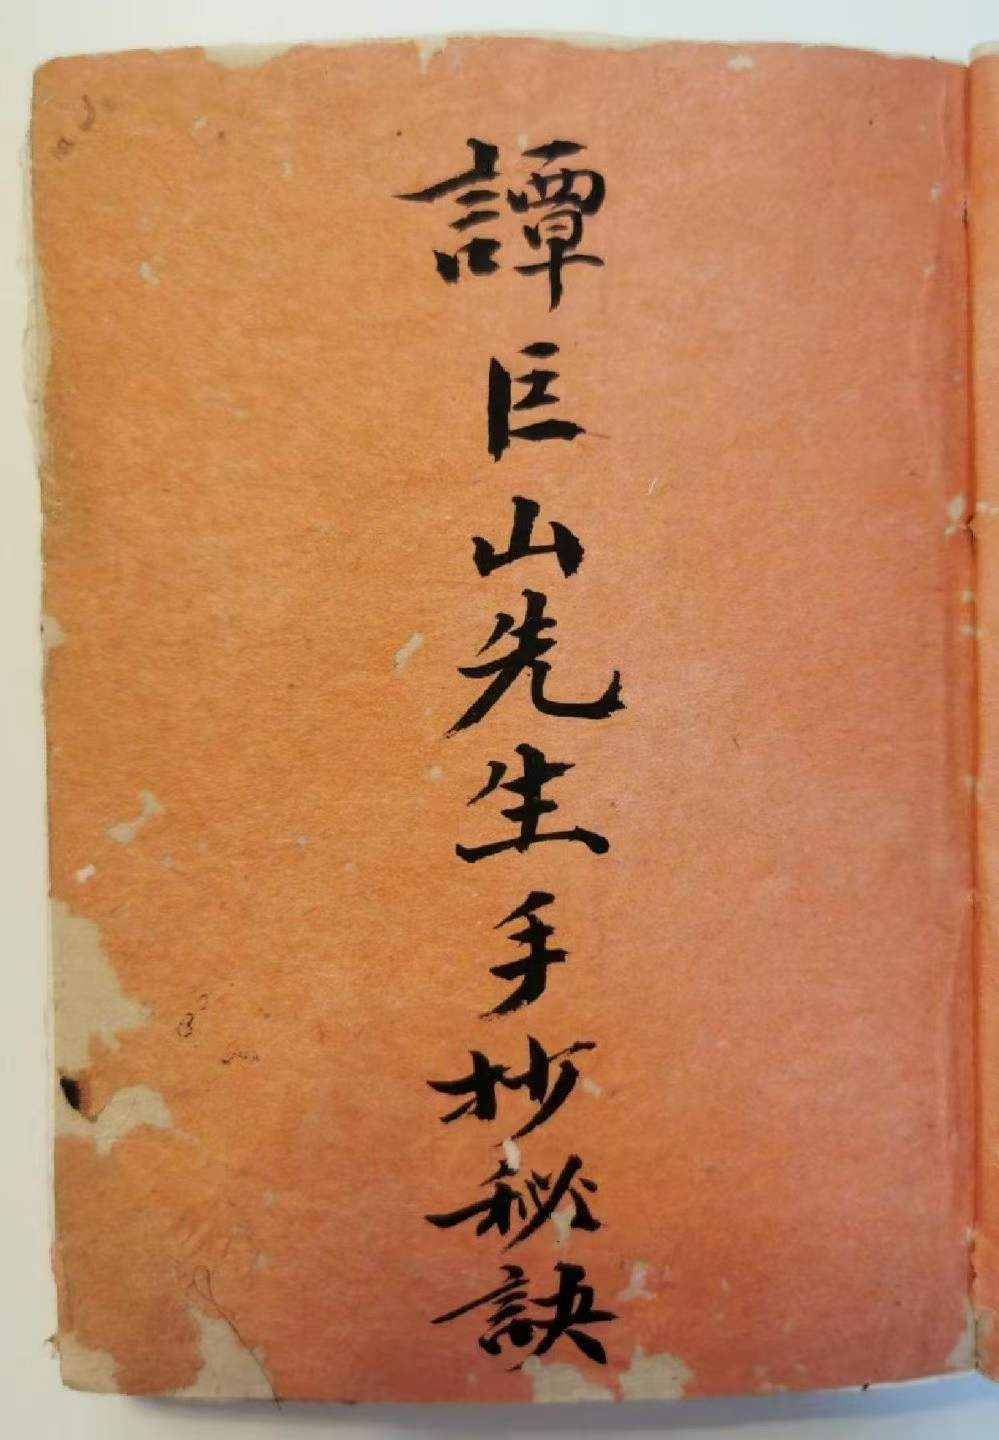 譚巨山先生手抄秘訣